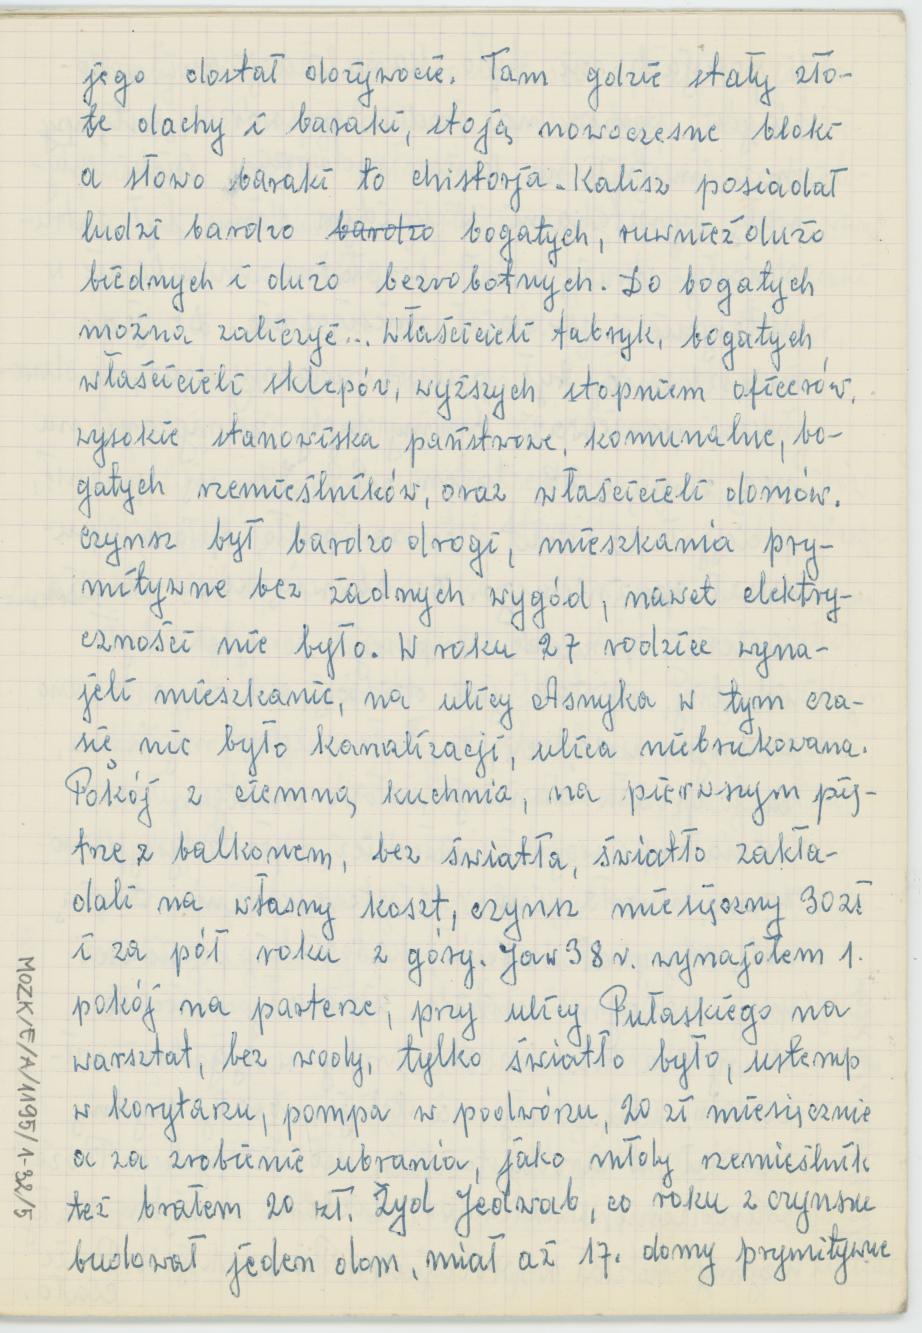 jego dostał dożywocie. Tam gdzie stały zło-
te dachy i baraki, stoją nowoczesne bloki
a słowo baraki to chistorja. Kalisz posiadał
ludzi bardzo bardzo bogatych, ruwnież dużo
biednych i dużo bezrobotnych. Do bogatych
można zaliczyć... Właścicieli fabryk, bogatych
właścicieli sklepów, wyższych stopniem oficerów,
wysokie stanowiska państwowe, komunalne, bo-
gatych rzemieślników, oraz właścicieli domów.
Czynsz był bardzo drogi, mieszkania pry-
mitywne bez żadnych wygód, nawet elektry-
czności nie było. W roku 27 rodzice wyna-
jeli mieszkanie, na ulicy Asnyka w tym cza-
sie nie było kanalizacji, ulica niebrukowana.
Pokój z ciemną kuchnia, na pierwszym pię-
trze z balkonem, bez światła, światło zakła-
dali na własny koszt, czynsz miesięczny 30 zł
i za pół roku z góry. Ja w 38 r. wynajołem 1.
pokój na parterze, przy ulicy Pułaskiego na
warsztat, bez wody, tylko światło było, ustemp
w korytarzu, pompa w podwórzu, 20 zł miesięcznie
a za zrobienie ubrania, jako młody rzemieślnik
też brałem 20 zł. Żyd Jedwab, co roku z czynszu
budował jeden dom, miał aż 17. domy prymitywne
MOZK/E/A/1195/1-32/5